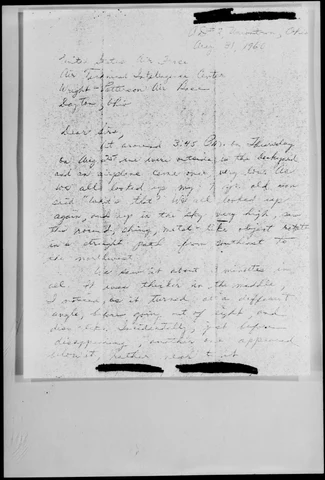 Ohio
Aug. 31, 1966
United States Air Force
Air Technical Intelligence Center
Wright-Patterson Air Base
Dayton, Ohio
Dear Sirs,
At around 3:45 P.M. on Thursday
on Aug we were outside in the backyard
and an airplane came over very low. As
we all looked up my 7 yr. old son
said "what's that" we all looked up
again, and up in the sky very high, saw
this round, shiny, metal-like object
in a straight path from southeast to
the northwest.
We saw it about minutes in
all. It was thicker in the middle,
I noticed, as it turned at a different
angle, before going out of sight, and
disc-like. Incidentally, just before
disappearing, another one appeared
below it, rather near to it